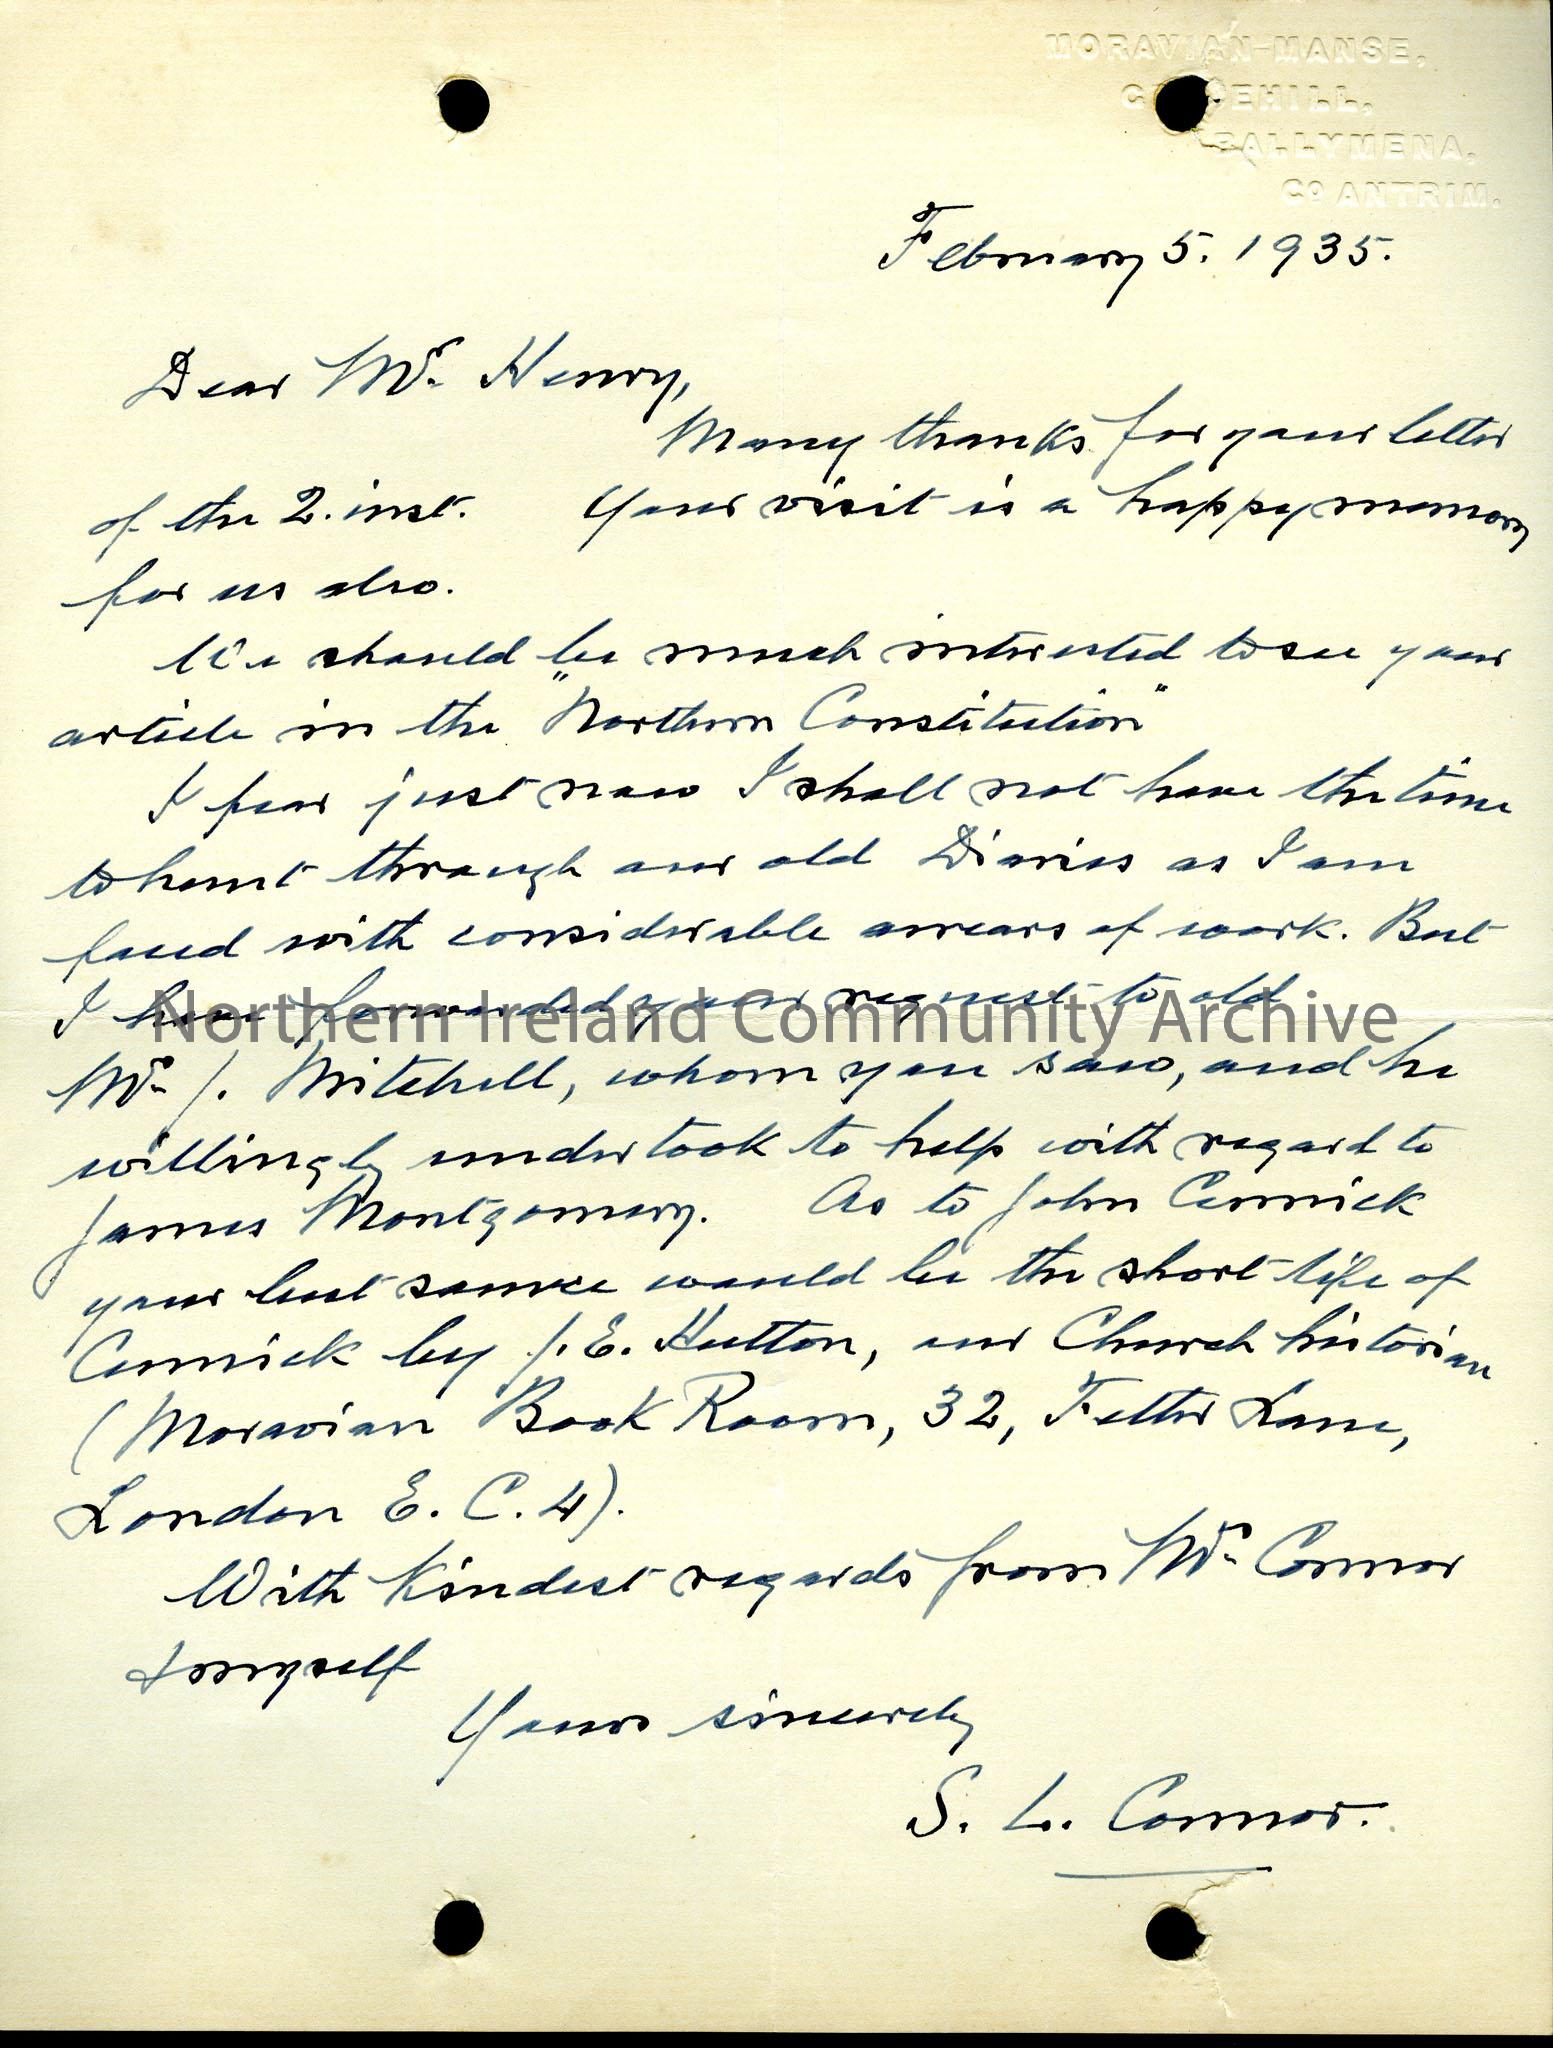 MORAVIAN-MANSE,
GRACEHILL,
BALLYMENA.
Co ANTRIM.
February 5. 1935.
Dear Mr. Henry,
Many thanks for your letter
of the 2. inst. Your visit is a happy memory
for us also.
We should be much interested to see your
article in the "Northern Constitution"
I fear just now I shall not have the time
to hunt through our old Diaries as I am
faced with considerable arrears of work. But
I have forwarded your request to old
Northern Ireland Community Archive
Mr. J. Mitchell, whom you saw, and he
willingly undertook to help with regard to
James Montgomery. As to John Cennick
your best source would be the short life of
Cennick by J. E. Hutton, our Church historian
(Moravian Book Room, 32, Fetter Lane,
London E. C. 4).
With kindest regards from Connor
& myself
Yours sincerely
S. L. Connor.